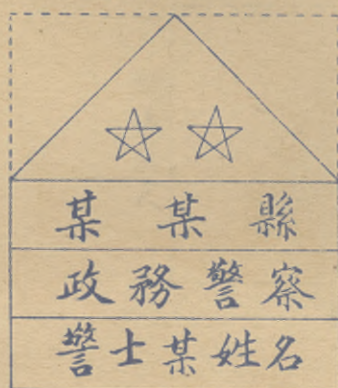 某某縣
政務警察
警士某姓名